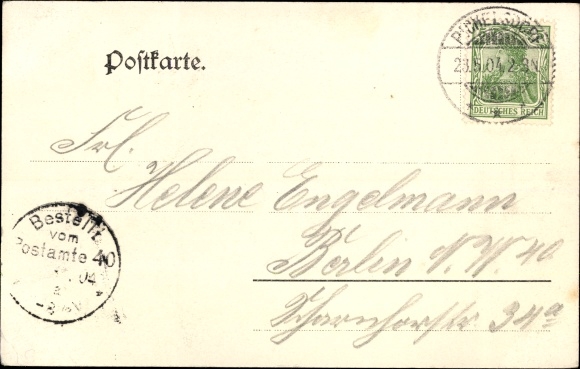 Postkarte.
PICHELSDORF
23.5.04. 2-3N.
DEUTSCHES REICH
Frl.
Helene Engelmann
Berlin N.W. 40
Scharnhorststr 34a
Bestellt
vom
Postamte 40
04